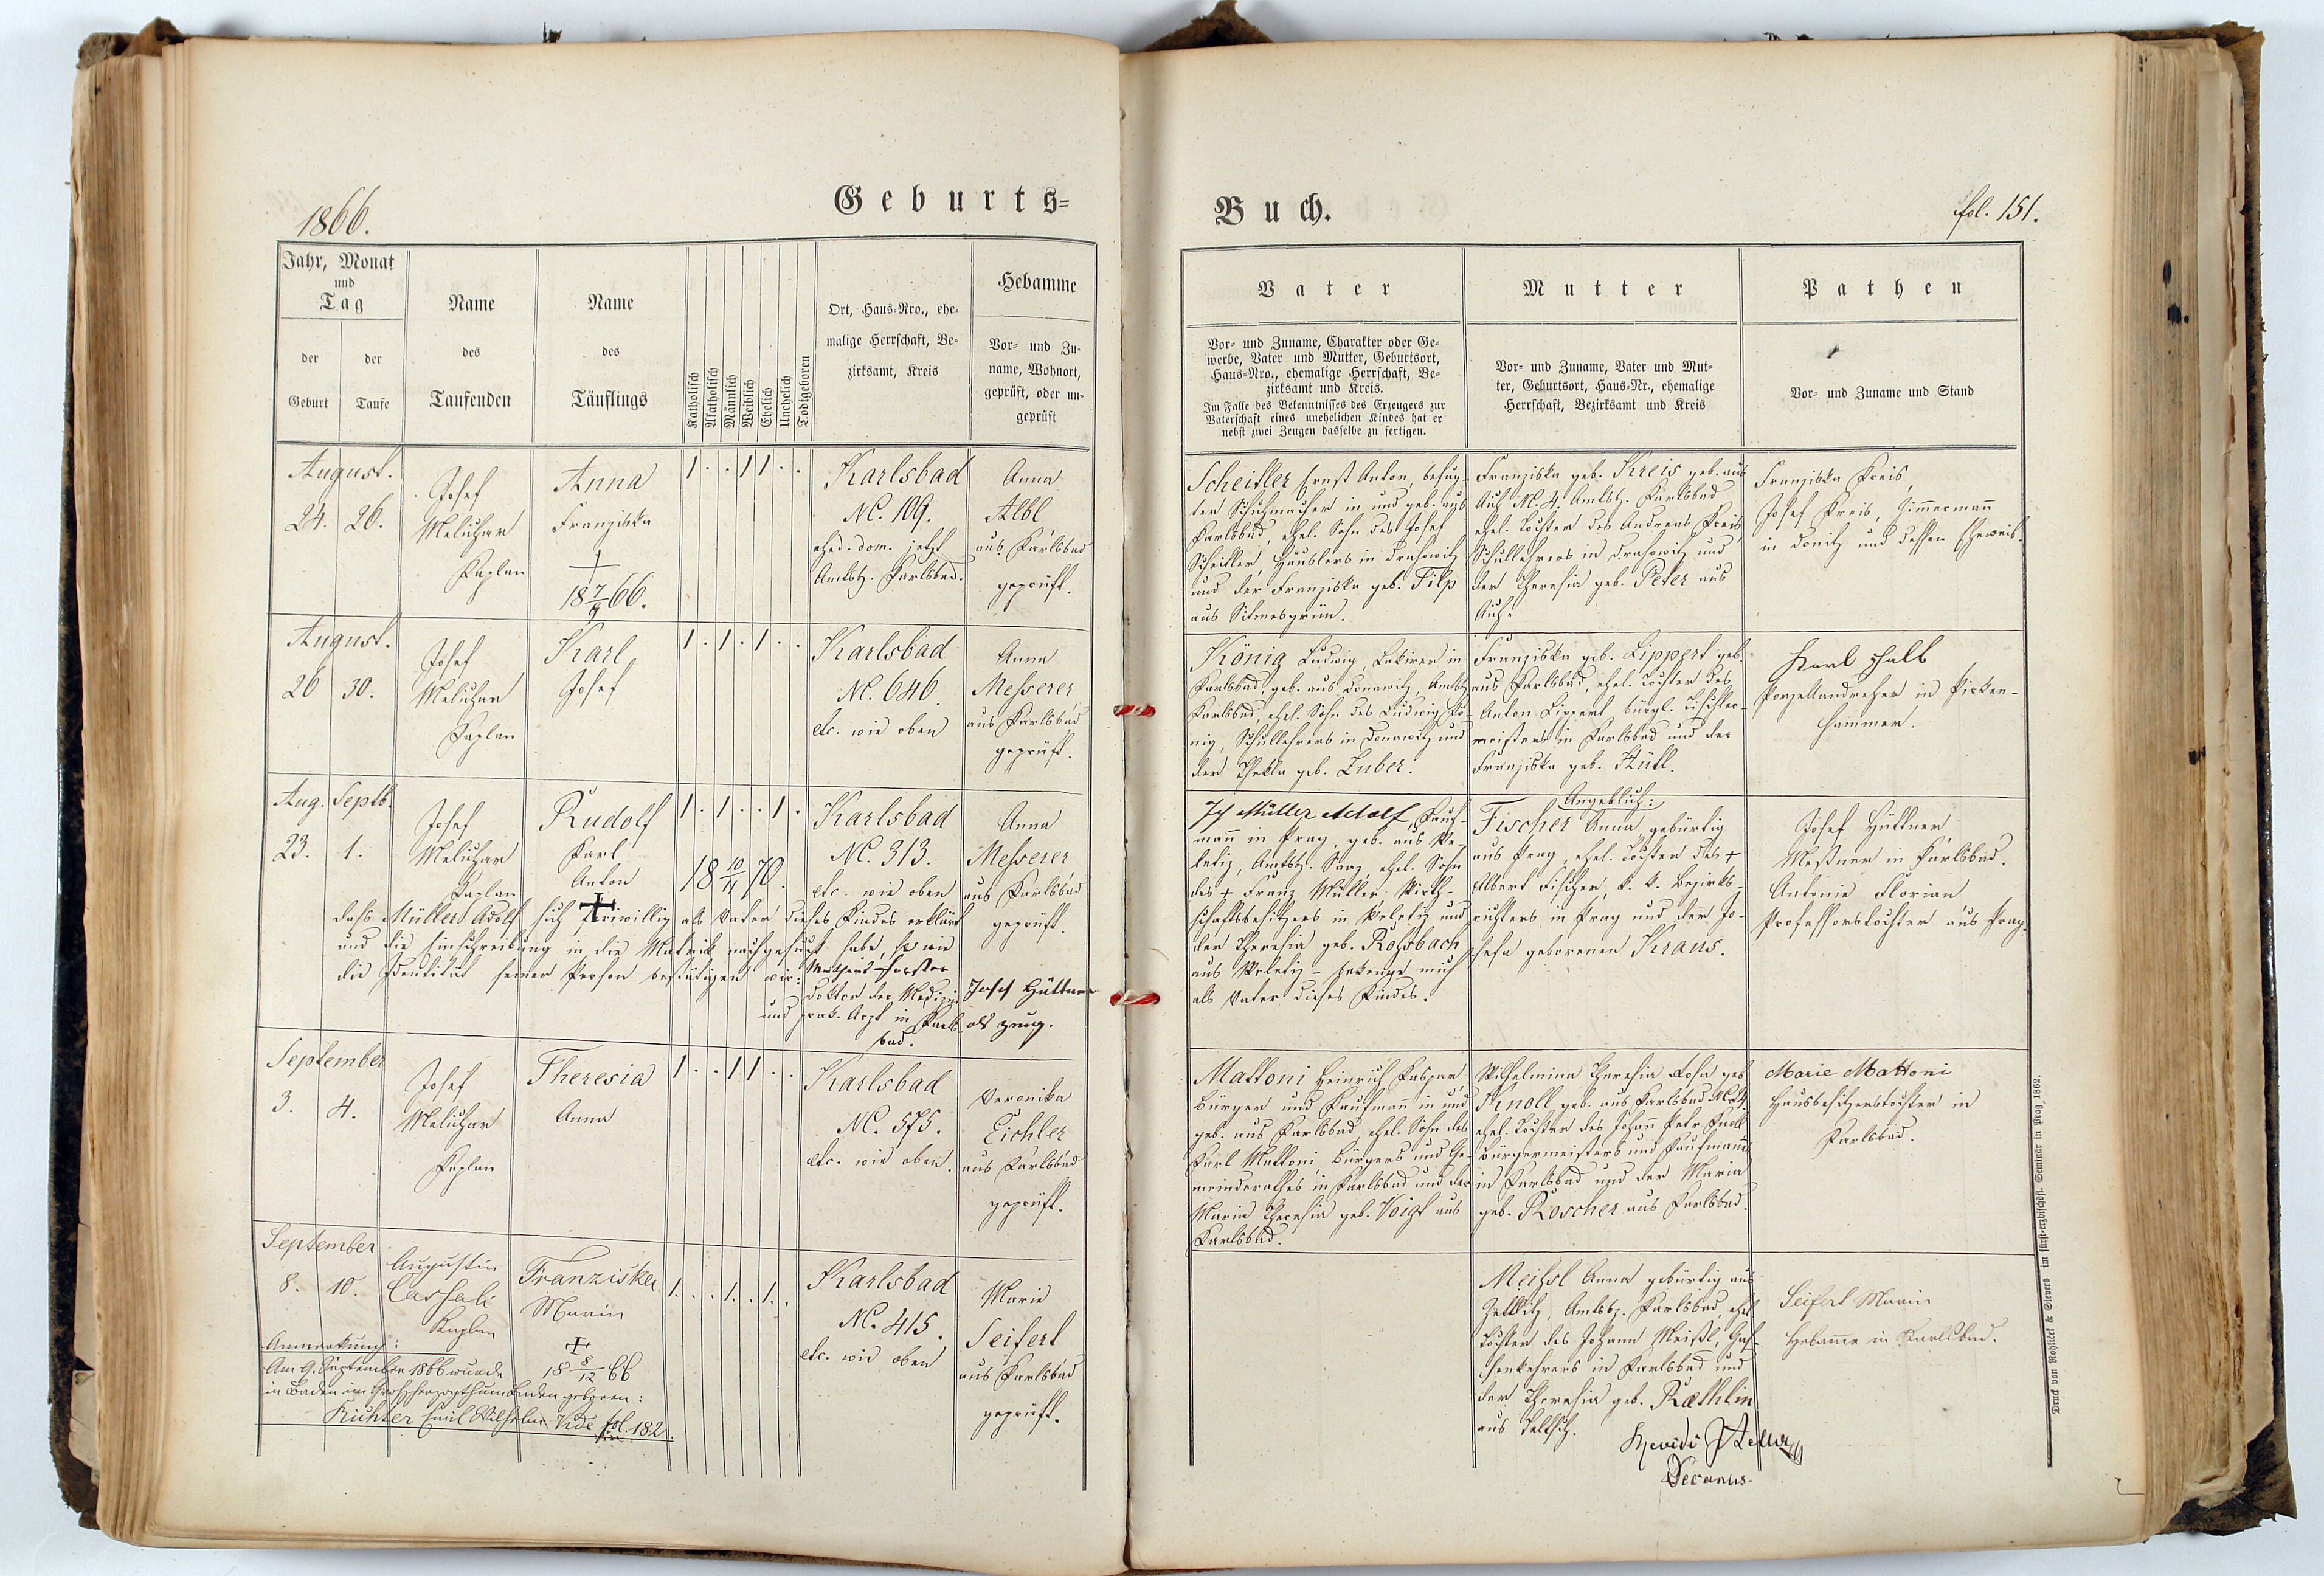 1866.
Geburts=
Jahr, Monat
und
Tag
der
Geburt
der
Taufe
Name
des
Taufenden
Name
des
Täuflings
Katholisch
Akatholisch
Männlich
Weiblich
Ehelich
Unehelich
Todtgeboren
Ort, Haus=Nro., ehe=
malige Herrschaft, Be=
zirksamt, Kreis
Hebamme
Vor= und Zu=
name, Wohnort,
geprüft, oder un=
geprüft
August.
24. 26.
Josef
Meluzar
Kaplan
Anna
Franziska
+
18 7/9 66.
1 . . 1 1 . .
Karlsbad
No. 109.
ehed. dom. jetzt
Amtsb. Karlsbad.
Anna
Albl
aus Karlsbad
geprüft.
August.
26 30.
Josef
Meluzar
Kaplan
Karl
Josef
1 . 1 . 1 . .
Karlsbad
No. 646
etc. wie oben
Anna
Messerer
aus Karlsbad
geprüft.
Aug. Septb.
23. 1.
Josef
Meluzar
Kaplan
Rudolf
Karl
Anton
+
1 . 1 . . 1 .
18 10/11 70.
Karlsbad
No. 313.
etc. wie oben
Anna
Messerer
aus Karlsbad
geprüft.
daß Müller Adolf sich freiwillig als Vater dieses Kindes erklärt
und die Einschreibung in die Matrik nachgesucht habe, so wie
die Identität seiner Person bestätigen wir:
Doktor der Medizin
und prak. Arzt in Karls-
bad.
Josef Hüttner
als Zeug.
September
3. 4.
Josef
Meluzar
Kaplan
Theresia
Anna
1 . . 1 1 . .
Karlsbad
No. 575.
etc. wie oben.
Veronika
Eichler
aus Karlsbad
geprüft.
September
8. 10.
Augustin
Cassali
Kaplan
Franziska
Maria
+
18 8/12 66
1 . . 1 . 1 .
Karlsbad
No. 415.
etc. wie oben
Marie
Seifert
aus Karlsbad
geprüft.
Anmerkung:
Am 9. September 1866 wurde
in Baden im Großherzogthum Baden geboren:
Richter Emil Wilhelm Vide fol. 182.
Buch.
fol. 151.
Vater
Vor= und Zuname, Charakter oder Ge=
werbe, Vater und Mutter, Geburtsort,
Haus=Nro., ehemalige Herrschaft, Be=
zirksamt und Kreis.
Im Falle des Bekenntnisses des Erzeugers zur
Vaterschaft eines unehelichen Kindes hat er
nebst zwei Zeugen dasselbe zu fertigen.
Mutter
Vor= und Zuname, Vater und Mut=
ter, Geburtsort, Haus=Nr., ehemalige
Herrschaft, Bezirksamt und Kreis
Pathen
Vor= und Zuname und Stand
Scheitler Ernst Anton, befug-
ter Schuhmacher in und geb. aus
Karlsbad, ehel. Sohn des Josef
Scheitler, Häuslers in Drahowitz
und der Franziska geb. Filp
aus Sitmesgrün.
Franziska geb. Kreis geb. aus
Aich No. 4. Amtsb. Karlsbad
ehel. Tochter des Andreas Kreis
Schullehrers in Drahowitz und
der Theresia geb. Peter aus
Aich.
Franziska Kreis,
Josef Kreis, Zimmermann
in Donitz und dessen Eheweib.
König Ludwig, Lakirer in
Karlsbad, geb. aus Donawitz, Amtsb.
Karlsbad, ehel. Sohn des Ludwig Kö-
nig, Schullehrers in Donawitz und
der Thekla geb. Zuber.
Franziska geb. Lippert geb.
aus Karlsbad, ehel. Tochter des
Anton Lippert bürgl. Tischler-
meisters in Karlsbad und der
Franziska geb. Hütl.
Karl Hall
Porzellandreher in Pirken-
hammer.
Ich Müller Adolf Kauf-
mann in Prag, geb. aus We-
letiz, Amtsb. Saaz, ehel. Sohn
des + Franz Müller Wirth-
schaftsbesitzers in Weletiz und
der Theresia geb. Rohsbach
aus Weletiz - bekenne mich
als Vater dieses Kindes.
Angeblich:
Fischer Anna, gebürtig
aus Prag, ehel. Tochter des +
Albert Fischer, k. k. Bezirks-
richters in Prag und der Jo-
sefa geborenen Kraus.
Josef Hüttner,
Meßner in Karlsbad.
Antonie Florian
Professorstochter aus Prag.
Mattoni Heinrich Kaspar,
Bürger und Kaufmann in und
geb. aus Karlsbad, ehel. Sohn des
Karl Mattoni, Bürgers und Ge-
meinderathes in Karlsbad und der
Maria Theresia geb. Voigt aus
Karlsbad.
Wilhelmine Theresia Rosa geb.
Knoll geb. aus Karlsbad No. 4
ehel. Tochter des Johann Peter Knoll
Bürgermeisters und Kaufmanns
in Karlsbad und der Maria
geb. Roscher aus Karlsbad.
Marie Mattoni
Hausbesitzerstochter in
Karlsbad.
Meißl Anna gebürtig aus
Zettlitz, Amtsbz. Karlsbad, ehel.
Tochter des Johann Meißl,
in Karlsbad und
der Theresia geb. Ræthlin
aus
Seifert Maria
Hebamme in Karlsbad.
Decanus.
Druck von Rohliček & Sievers im fürst-erzbischöfl. Seminär in Prag 1862.